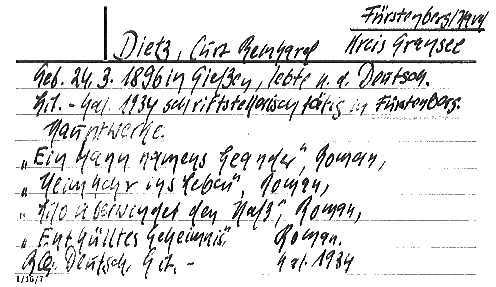 Fürstenberg/Havel
Dietz, Curt Reinhard Kreis Gransee
Geb. 24.3.1896 in Gießen, lebte n. d. Deutsch.
Lit.-Kal. 1934 schriftstellerisch tätig in Fürstenberg.
Hauptwerke.
„Ein Mann namens Geander", Roman,
„Heimkehr ins Leben", Roman,
„überwindet den Haß", Roman,
„Enthülltes Geheimnis". Roman.
Deutsch. Lit. - Kal. 1934